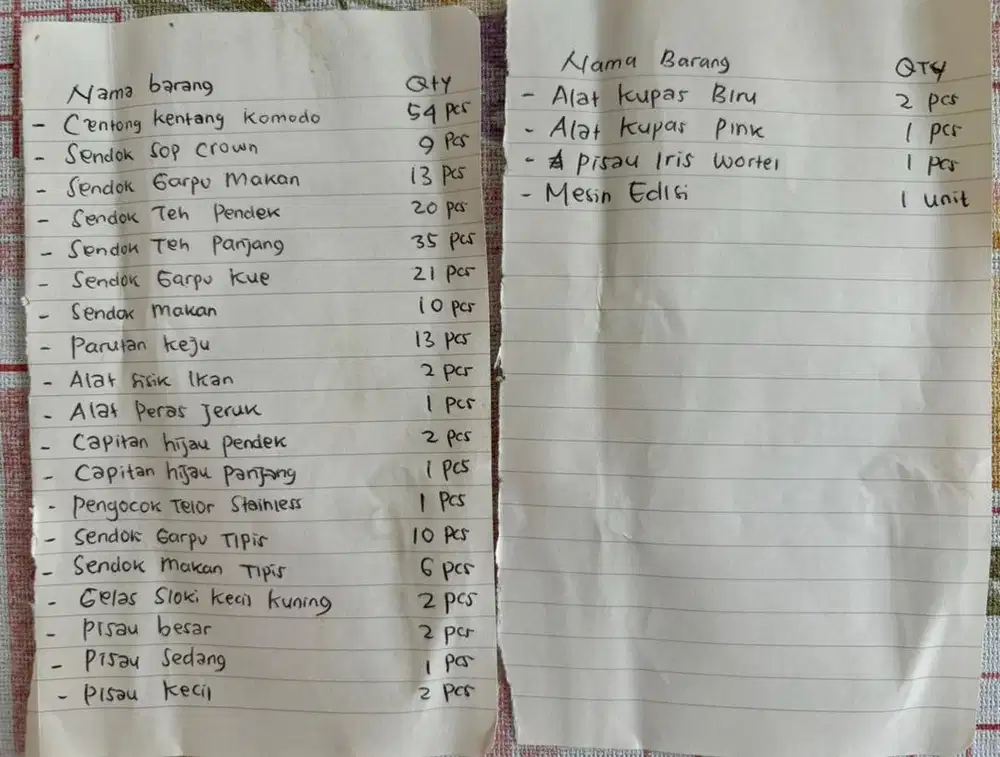 Nama barang Qty
- Centong kentang komodo 54 pcs
- Sendok Sop Crown 9 Pcs
- Sendok Garpu Makan 13 pcs
- Sendok Teh Pendek 20 pcs
- Sendok Teh Panjang 35 pcs
- Sendok Garpu kue 21 pcs
- Sendok Makan 10 pcs
- Parutan keju 13 pcs
- Alat Sisik Ikan 2 pcs
- Alat Peras Jeruk 1 pcs
- Capitan hijau pendek 2 pcs
- Capitan hijau panjang 1 pcs
- Pengocok Telor Stainless 1 Pcs
- Sendok Garpu Tipis 10 pcs
- Sendok Makan Tipis 6 pcs
- Gelas Sloki kecil kuning 2 pcs
- Pisau besar 2 pcs
- Pisau Sedang 1 pcs
- Pisau kecil 2 pcs
Nama Barang QTY
- Alat kupas Biru 2 pcs
- Alat kupas Pink 1 pcs
- Pisau Iris Wortel 1 pcs
- Mesin Edisi 1 unit